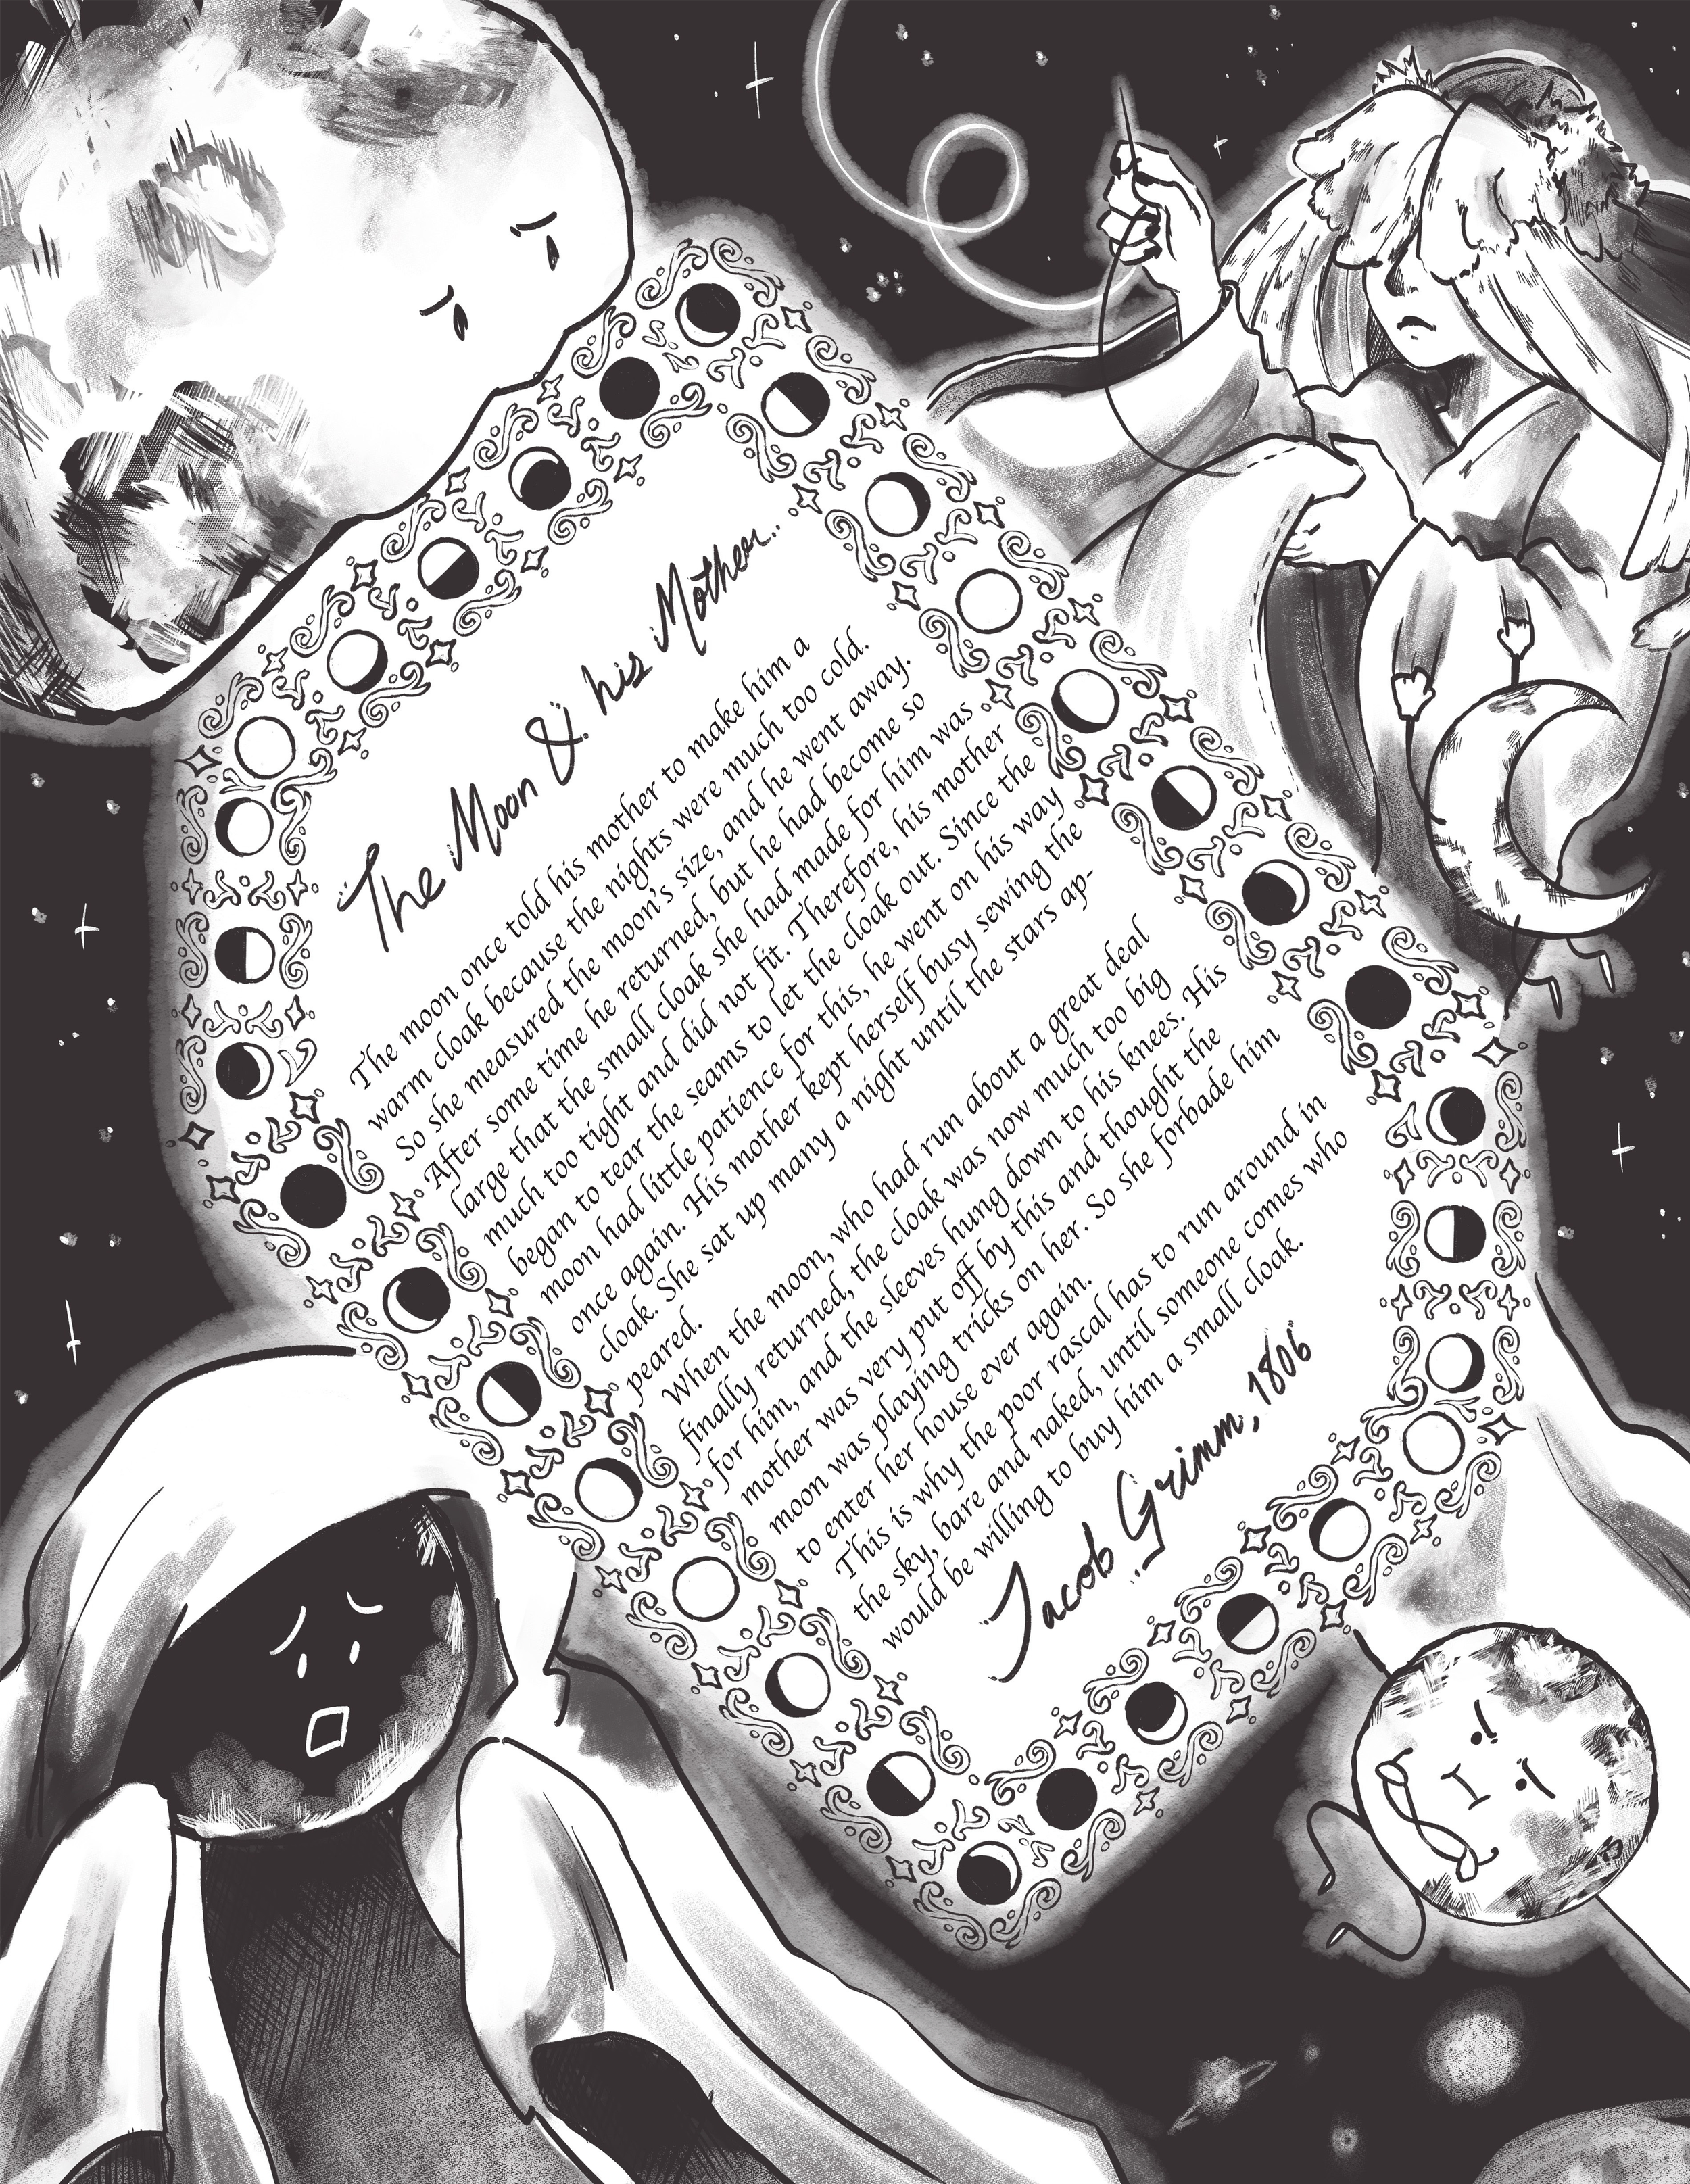 The Moon & his Mother...
The moon once told his mother to make him a
warm cloak because the nights were much too cold.
So she measured the moon's size, and he went away.
After some time he returned, but he had become so
large that the small cloak she had made for him was
much too tight and did not fit. Therefore, his mother
began to tear the seams to let the cloak out. Since the
moon had little patience for this, he went on his way
once again. His mother kept herself busy sewing the
cloak. She sat up many a night until the stars ap-
peared.
When the moon, who had run about a great deal
finally returned, the cloak was now much too big
for him, and the sleeves hung down to his knees. His
mother was very put off by this and thought the
moon was playing tricks on her. So she forbade him
to enter her house ever again.
This is why the poor rascal has to run around in
the sky, bare and naked, until someone comes who
would be willing to buy him a small cloak.
Jacob Grimm, 1806